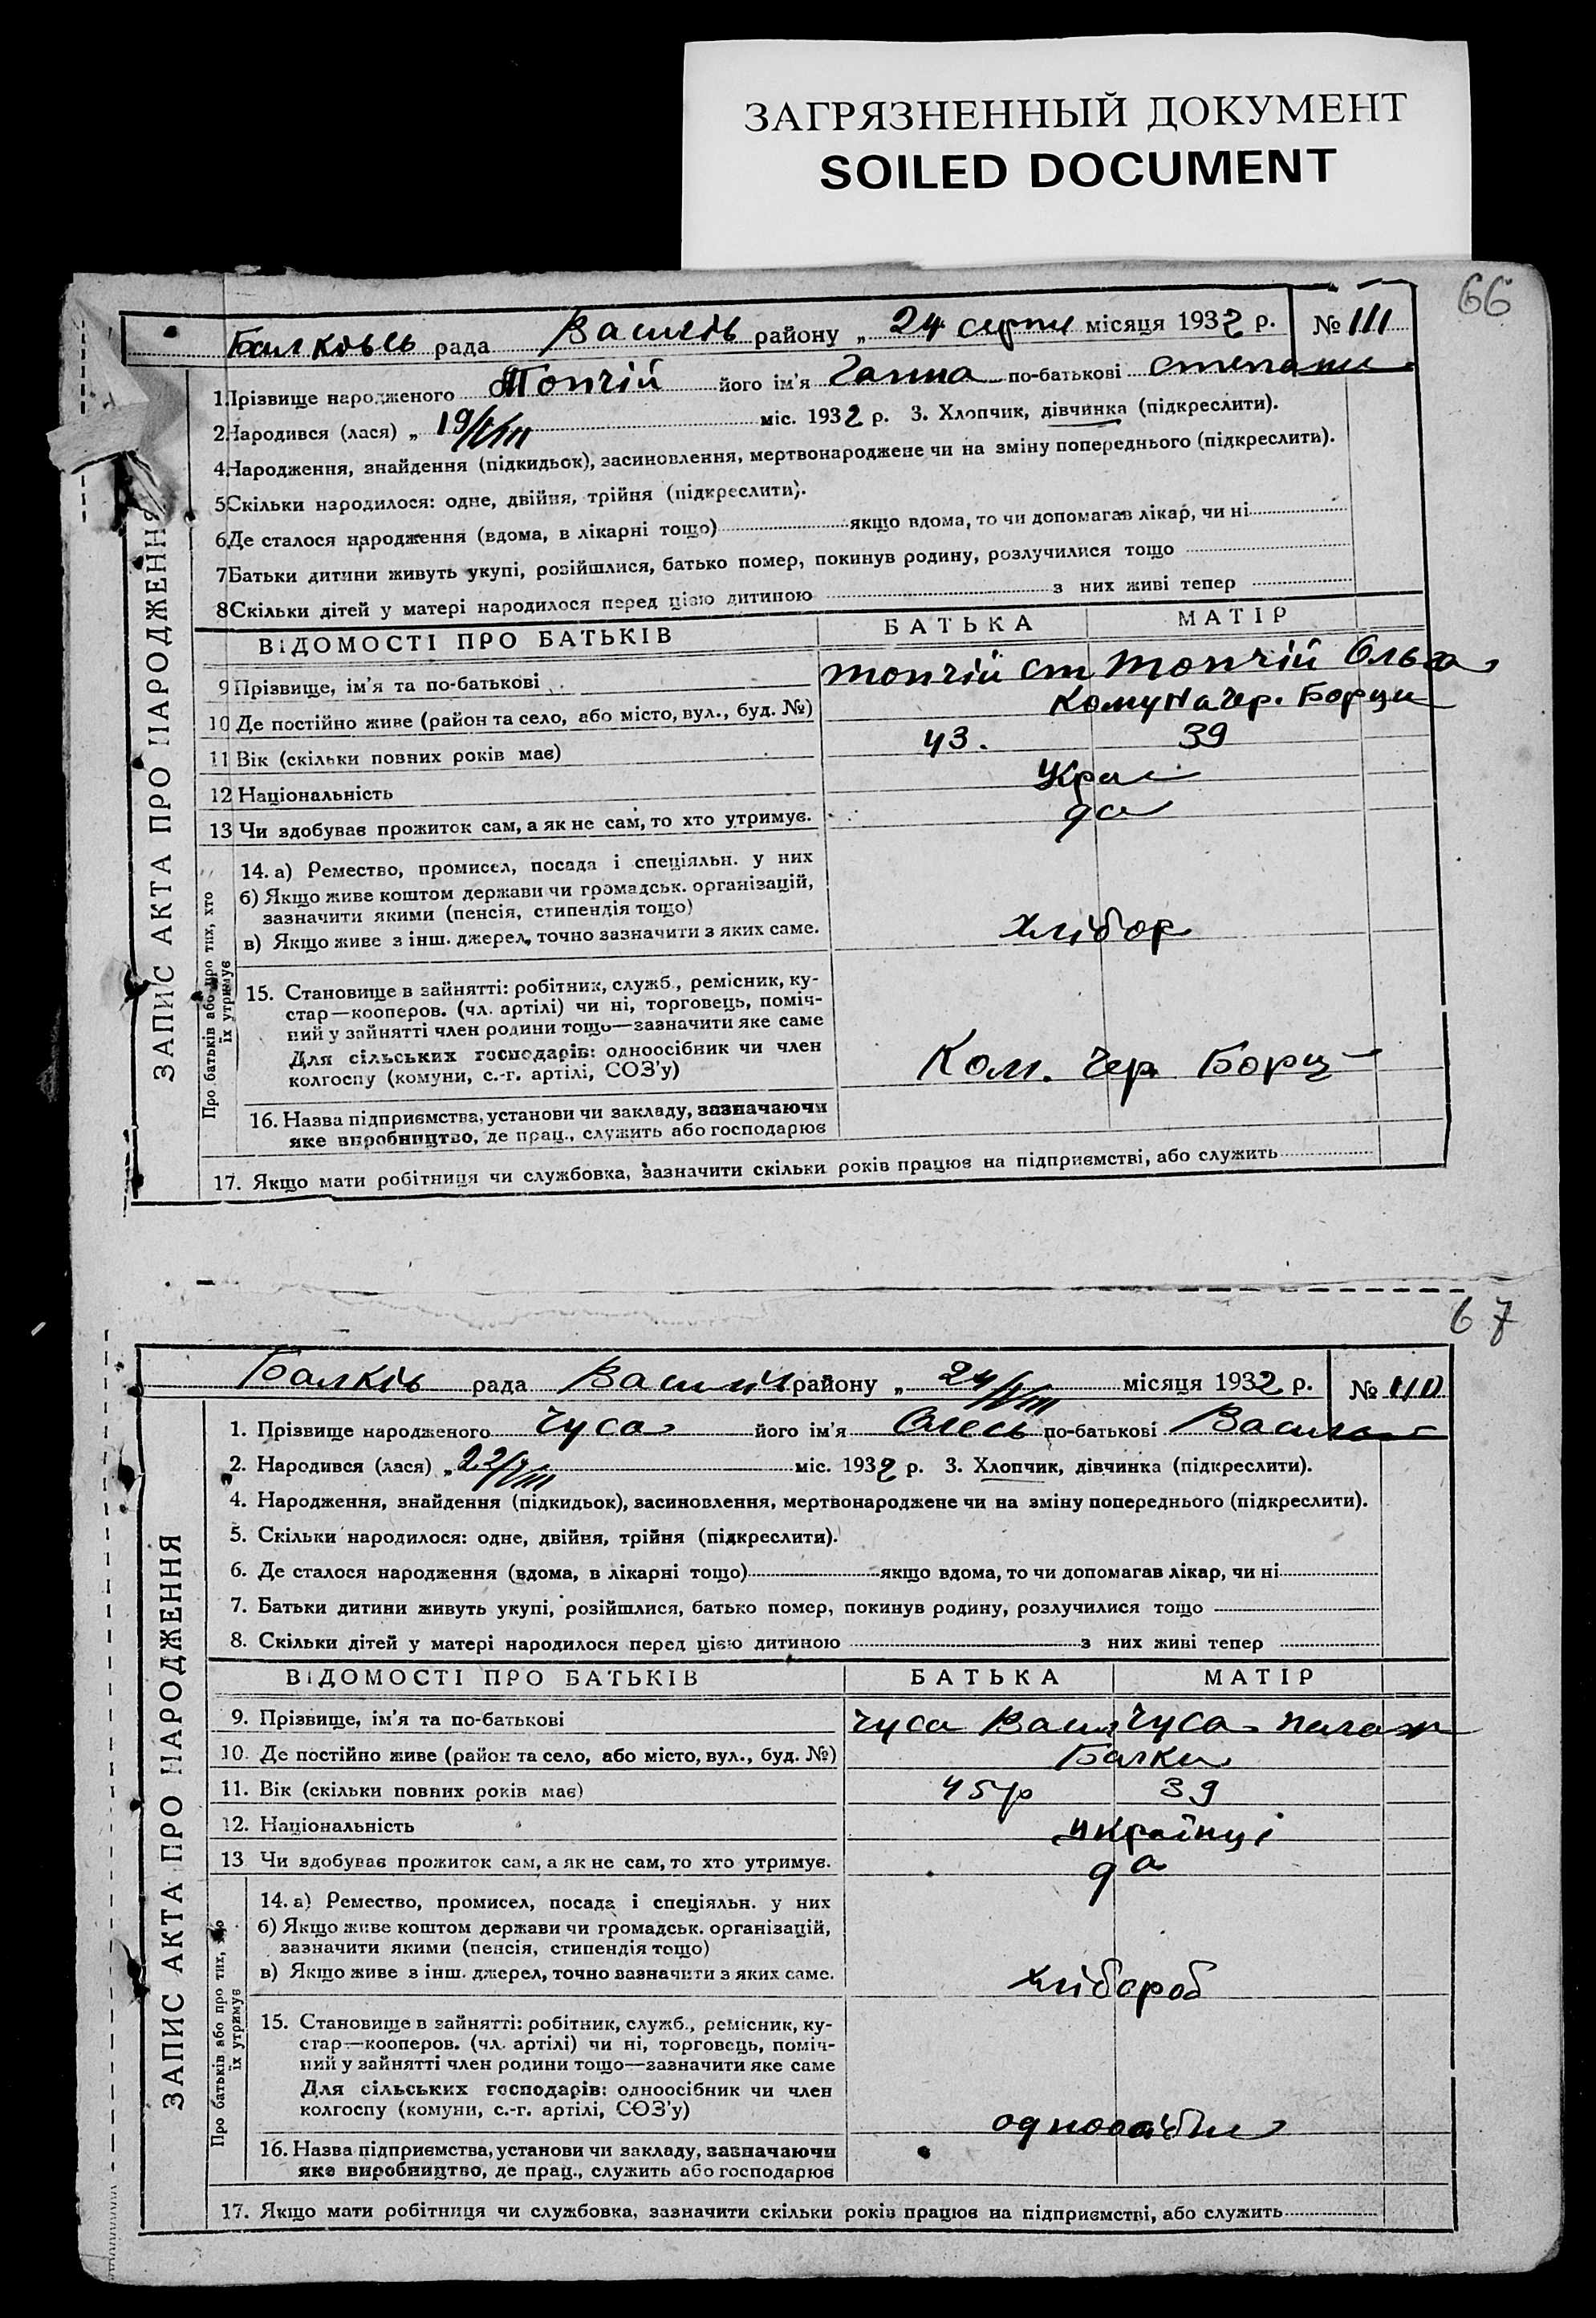 ЗАГРЯЗНЕННЫЙ ДОКУМЕНТ
SOILED DOCUMENT
66
рада Василів району „ 24 серпня місяця 1932 р. № 111
1. Прізвище народженого Топчій його ім'я Ганна по-батькові
2. Народився (лася) „ 19/VIII міс. 1932 р. 3. Хлопчик, дівчинка (підкреслити).
4. Народження, знайдення (підкидьок), засиновлення, мертвонароджене чи на зміну попереднього (підкреслити).
5 Скільки народилося: одне, двійня, трійня (підкреслити).
6. Де сталося народження (вдома, в лікарні тощо) якщо вдома, то чи допомагав лікар, чи ні
7 Батьки дитини живуть укупі, розійшлися, батько помер, покинув родину, розлучилися тощо
8 Скільки дітей у матері народилося перед цією дитиною з них живі тепер
ВІДОМОСТІ ПРО БАТЬКІВ БАТЬКА МАТІР
9 Прізвище, ім'я та по-батькові Топчій Ст Топчій Ольга
10 Де постійно живе (район та село, або місто, вул., буд. №) Комуна Чер. Борци
11 Вік (скільки повних років має) 43. 39
12 Національність Украї
13 Чи здобував прожиток сам, а як не сам, то хто утримує. да
14. а) Ремество, промисел, посада і спеціяльн. у них
б) Якщо живе коштом держави чи громадськ. організацій,
зазначити якими (пенсія, стипендія тощо)
в) Якщо живе з інш. джерел, точно зазначити з яких саме. хлібор
15. Становище в зайнятті: робітник, служб., ремісник, ку-
стар—кооперов. (чл. артілі) чи ні, торговець, поміч-
ний у зайнятті член родини тощо—зазначити яке саме
Для сільських господарів: одноосібник чи член
колгоспу (комуни, с.-г. артілі, СОЗ'у) Ком. Чер. Борц
16. Назва підприємства, установи чи закладу, зазначаючи
яке виробництво, де прац., служить або господарює
17. Якщо мати робітниця чи службовка, зазначити скільки років працює на підприємстві, або служить
ЗАПИС АКТА ПРО НАРОДЖЕННЯ
Про батьків або про тих, хто
їх утримує
67
Балків рада Василів району „ 24/VIII місяця 1932 р. № 110
1. Прізвище народженого Чуса його ім'я Олесь по-батькові
2. Народився (лася) „ 22/VIII міс. 1932 р. 3. Хлопчик, дівчинка (підкреслити).
4. Народження, знайдення (підкидьок), засиновлення, мертвонароджене чи на зміну попереднього (підкреслити).
5. Скільки народилося: одне, двійня, трійня (підкреслити).
6. Де сталося народження (вдома, в лікарні тощо) якщо вдома, то чи допомагав лікар, чи ні
7. Батьки дитини живуть укупі, розійшлися, батько помер, покинув родину, розлучилися тощо
8. Скільки дітей у матері народилося перед цією дитиною з них живі тепер
ВІДОМОСТІ ПРО БАТЬКІВ БАТЬКА МАТІР
9. Прізвище, ім'я та по-батькові Чуса Васил Чуса Палаж
10. Де постійно живе (район та село, або місто, вул., буд. №) Балки
11. Вік (скільки повних років має) 45 р 39
12. Національність українці
13 Чи здобував прожиток сам, а як не сам, то хто утримує. да
14. а) Ремество, промисел, посада і спеціяльн. у них
б) Якщо живе коштом держави чи громадськ. організацій,
зазначити якими (пенсія, стипендія тощо)
в) Якщо живе з інш. джерел, точно зазначити з яких саме. хлібороб
15. Становище в зайнятті: робітник, служб., ремісник, ку-
стар—кооперов. (чл. артілі) чи ні, торговець, поміч-
ний у зайнятті член родини тощо—зазначити яке саме
Для сільських господарів: одноосібник чи член
колгоспу (комуни, с.-г. артілі, СОЗ'у) одноосібни
16. Назва підприємства, установи чи закладу, зазначаючи
яке виробництво, де прац., служить або господарює
17. Якщо мати робітниця чи службовка, зазначити скільки років працює на підприємстві, або служить
ЗАПИС АКТА ПРО НАРОДЖЕННЯ
Про батьків або про тих, хто
їх утримує